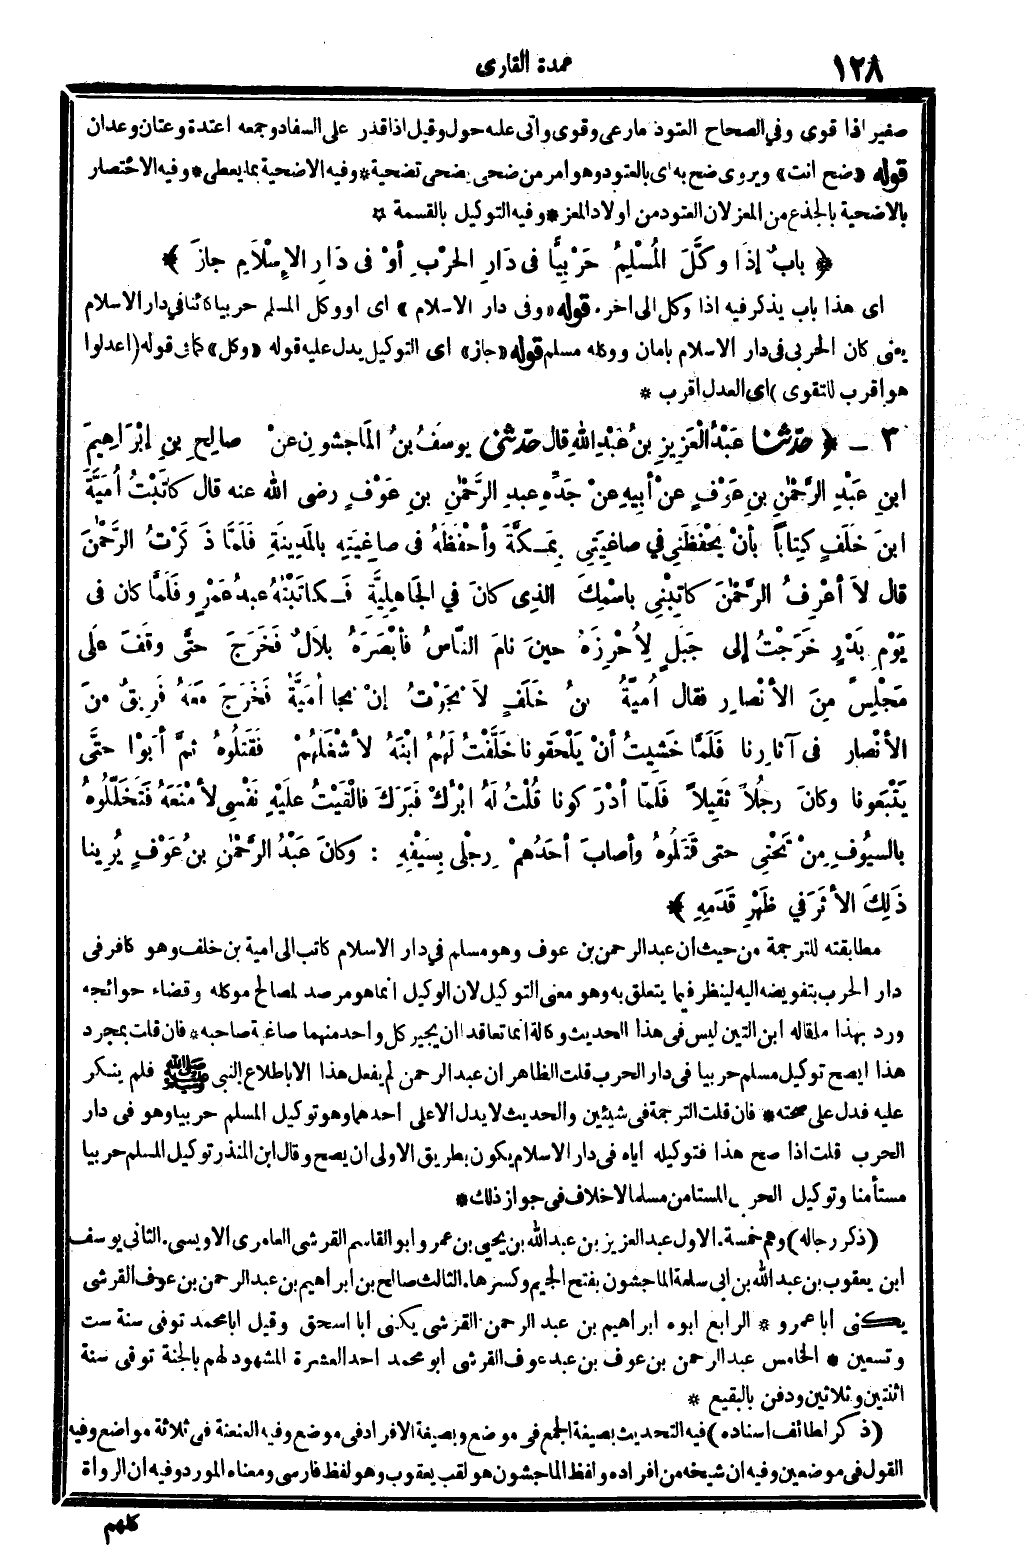 ١٢٨
عمدة القارى
صغير اذا قوى وفي الصحاح العتود مارعى وقوى واتى عليه حول وقيل اذا قدر على السفاد وجمعه اعتدة وعتان وعدان
قوله «ضح انت» ويروى ضح به اى بالعتود وهو امر من ضحى يضحى تضحية * وفيه الاضحية بما يعطى * وفيه الاختصار
بالاضحية بالجذع من المعز لان العتود من اولاد المعز * وفيه التوكيل بالقسمة *
﴿ بابٌ إذَا وكَّلَ المُسْلِمُ حَرْبِيًّا فى دَارِ الحَرْبِ أوْ فى دَارِ الإِسْلاَمِ جازَ ﴾
اى هذا باب يذكر فيه اذا وكل الى اخره. قوله «وفى دار الاسلام» اى او وكل المسلم حربيا كائنا في دار الاسلام
يعنى كان الحربى فى دار الاسلام بامان ووكله مسلم قوله «جاز» اى التوكيل يدل عليه قوله «وكل» كما فى قوله (اعدلوا
هو اقرب للتقوى) اى العدل اقرب *
٣ ـ ﴿ حدّثنا عَبْدُ الْعَزِيزِ بنُ عَبْدِ اللهِ قال حدّثنى يوسَفُ بنُ المَاجشونِ عنْ صالِحِ بنِ إبْرَاهِيمَ
ابنِ عَبْدِ الرَّحْمٰنِ بنِ عَوْفٍ عنْ أبيهِ عنْ جَدِّهِ عبدِ الرَّحْمٰنِ بنِ عَوْفٍ رضى الله عنه قال كاتَبْتُ أُمَيَّةَ
ابنَ خَلَفٍ كِتاباً بأنْ يَحْفَظَنِي في صاغِيَتِي بِمَكَّةَ وأحْفَظَهُ فى صاغِيَتِهِ بالمَدِينَةِ فَلَمَّا ذَكَرْتُ الرَّحْمٰنَ
قال لاَ أعْرِفُ الرَّحْمٰنَ كاتِبْنِي باسْمِكَ الذِى كانَ في الجَاهِلِيَّةِ فَكاتَبْتُهُ عبدُ عَمْرٍو فَلَمَّا كان فى
يَوْمِ بَدْرٍ خَرَجْتُ إلى جَبَلٍ لِأُحْرِزَهُ حينَ نامَ النَّاسُ فأبْصَرَهُ بلاَلٌ فَخَرَجَ حتَّى وقَفَ علَى
مَجْلِسٍ مِنَ الأنْصارِ فقال أُمَيَّةُ بنُ خَلَفٍ لاَ نَجَوْتُ إنْ نجا أُمَيَّةُ فَخَرَجَ مَعَهُ فَرِيقٌ مِنَ
الأنْصارِ فى آثارِنا فَلَمَّا خَشِيتُ أنْ يَلْحَقونا خَلَّفْتُ لَهُمُ ابْنَهُ لأشْغَلَهُمْ فَقَتَلُوهُ ثمَّ أبَوْا حتَّى
يَتْبَعونا وكانَ رجُلاً ثَقيلاً فَلَمّا أدْرَكونا قُلْتُ لَهُ ابْرُكْ فَبَرَكَ فالْقَيْتُ علَيْهِ نَفْسِى لأمْنَعَهُ فَتَخَلَّلُوهُ
بالسيُوفِ مِنْ تَحْتِى حتى قَتَلُوهُ وأصابَ أحَدُهمْ رِجْلى بِسَيْفِهِ : وكانَ عَبْدُ الرَّحْمٰنِ بنُ عَوْفٍ يُرِينا
ذَلِكَ الأثَرَ في ظَهْرِ قَدَمِهِ ﴾ *
مطابقته للترجمة من حيث ان عبد الرحمن بن عوف وهو مسلم في دار الاسلام كاتب الى امية بن خلف وهو كافر فى
دار الحرب بتفويضه اليه لينظر فيما يتعلق به وهو معنى التوكيل لان الوكيل انما هو مرصد لمصالح موكله وقضاء حوائجه
ورد بهذا ما قاله ابن التين ليس فى هذا الحديث وكالة انما تعاقدا ان يجير كل واحد منهما صاغية صاحبه * فان قلت بمجرد
هذا ايصح توكيل مسلم حربيا فى دار الحرب قلت الظاهر ان عبد الرحمن لم يفعل هذا الا باطلاع النبى ﷺ فلم ينكر
عليه فدل على صحته * فان قلت الترجمة فى شيئين والحديث لا يدل الا على احدهما وهو توكيل المسلم حربيا وهو فى دار
الحرب قلت اذا صح هذا فتوكيله اياه فى دار الاسلام يكون بطريق الاولى ان يصح وقال ابن المنذر توكيل المسلم حربيا
مستأمنا وتوكيل الحربى المستامن مسلما لاخلاف فى جواز ذلك *
(ذكر رجاله) وهم خمسة. الاول عبد العزيز بن عبد الله بن يحيى بن عمرو ابو القاسم القرشى العامرى الاويسى. الثانى يوسف
ابن يعقوب بن عبد الله بن ابى سلمة الماجشون بفتح الجيم وكسرها. الثالث صالح بن ابراهيم بن عبد الرحمن بن عوف القرشى
يكنى أبا عمرو * الرابع ابوه ابراهيم بن عبد الرحمن القرشى يكنى ابا اسحق وقيل ابا محمد توفى سنة ست
وتسعين * الخامس عبد الرحمن بن عوف بن عبد عوف القرشى ابو محمد احد العشرة المشهود لهم بالجنة توفى سنة
اثنتين وثلاثين ودفن بالبقيع *
(ذكر لطائف اسناده) فيه التحديث بصيغة الجمع فى موضع وبصيغة الافراد فى موضع وفيه العنعنة فى ثلاثة مواضع وفيه
القول فى موضعين وفيه ان شيخه من افراده ولفظ الماجشون هو لقب يعقوب وهو لفظ فارسى ومعناه المورد وفيه ان الرواة
كلهم